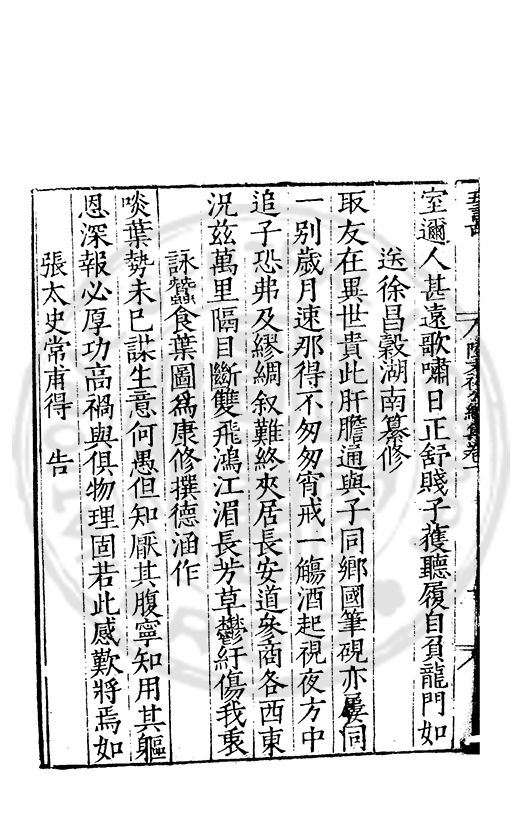 室邇人甚遠歌嘯日正舒賤子獲聽履自負龍門如
送徐昌穀湖南纂修
取友在異世貴此肝膽通與子同鄉國筆硯亦屢同
一别歲月速那得不匆匆宵戒一觴酒起視夜方中
追子恐弗及繆綢叙難終夾居長安道參商各西東
況兹萬里隔目斷雙飛鴻江湄長芳草鬱紆傷我衷
詠蠶食葉圖爲康修撰德涵作
啖葉勢未已謀生意何愚但知厭其腹寧知用其軀
恩深報必厚功高禍與俱物理固若此感歎將焉如
張太史常甫得告